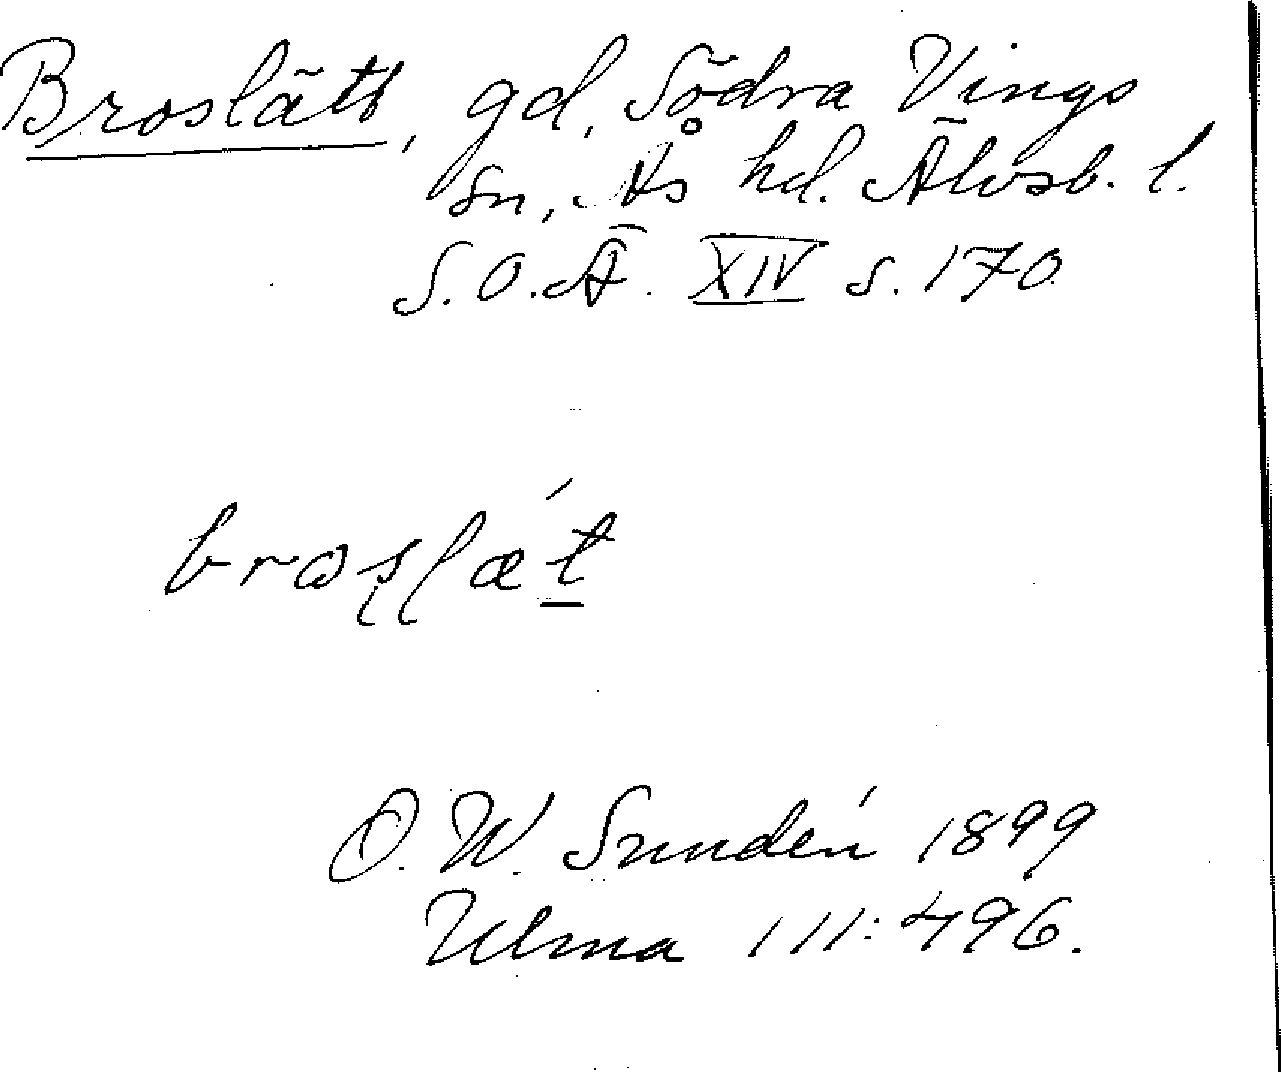 Broslätt, gd, Södra Vings
sn, Ås hd. Älvsb. l.
S.O.Ä. XIV s. 170
O. W. Sundén 1899
Ulma 111:496.